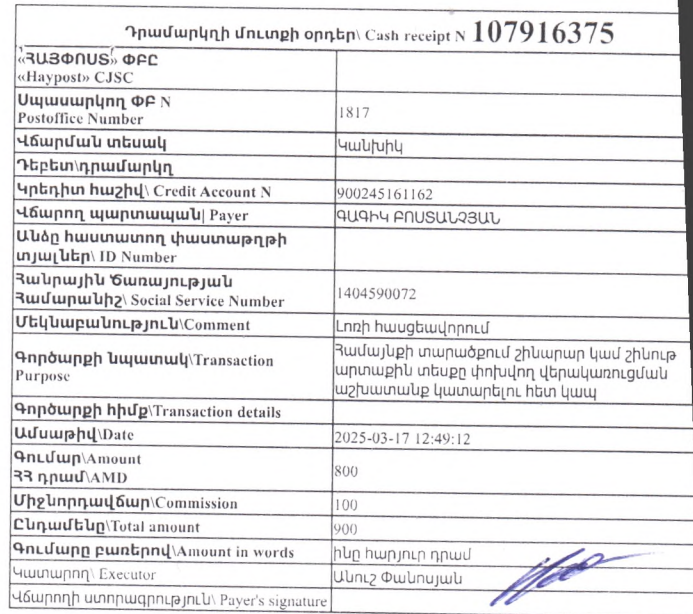 Դրամարկղի մուտքի օրդեր\ Cash receipt N 107916375
«ՀԱՅՓՈՍՏ» ՓԲԸ
«Haypost» CJSC
Սպասարկող ՓԲ N
Postoffice Number
1817
Վճարման տեսակ
Կանխիկ
Դեբետ\դրամարկղ
Կրեդիտ հաշիվ\ Credit Account N
900245161162
Վճարող պարտապան| Payer
ԳԱԳԻԿ ԲՈՍՏԱՆՉՅԱՆ
Անձը հաստատող փաստաթղթի
տյալներ\ ID Number
Հանրային Ծառայության
Համարանիշ\ Social Service Number
1404590072
Մեկնաբանություն\Comment
Լոռի հասցեավորում
Գործարքի նպատակ\Transaction
Purpose
Համայնքի տարածքում շինարար կամ շինութ
արտաքին տեսքը փոխվող վերակառուցման
աշխատանք կատարելու հետ կապ
Գործարքի հիմք\Transaction details
Ամսաթիվ\Date
2025-03-17 12:49:12
Գումար\Amount
ՀՀ դրամ\AMD
800
Միջնորդավճար\Commission
100
Ընդամենը\Total amount
900
Գումարը բառերով\Amount in words
ինը հարյուր դրամ
Կատարող\ Executor
Անուշ Փանոսյան
Վճարողի ստորագրություն\ Payer's signature